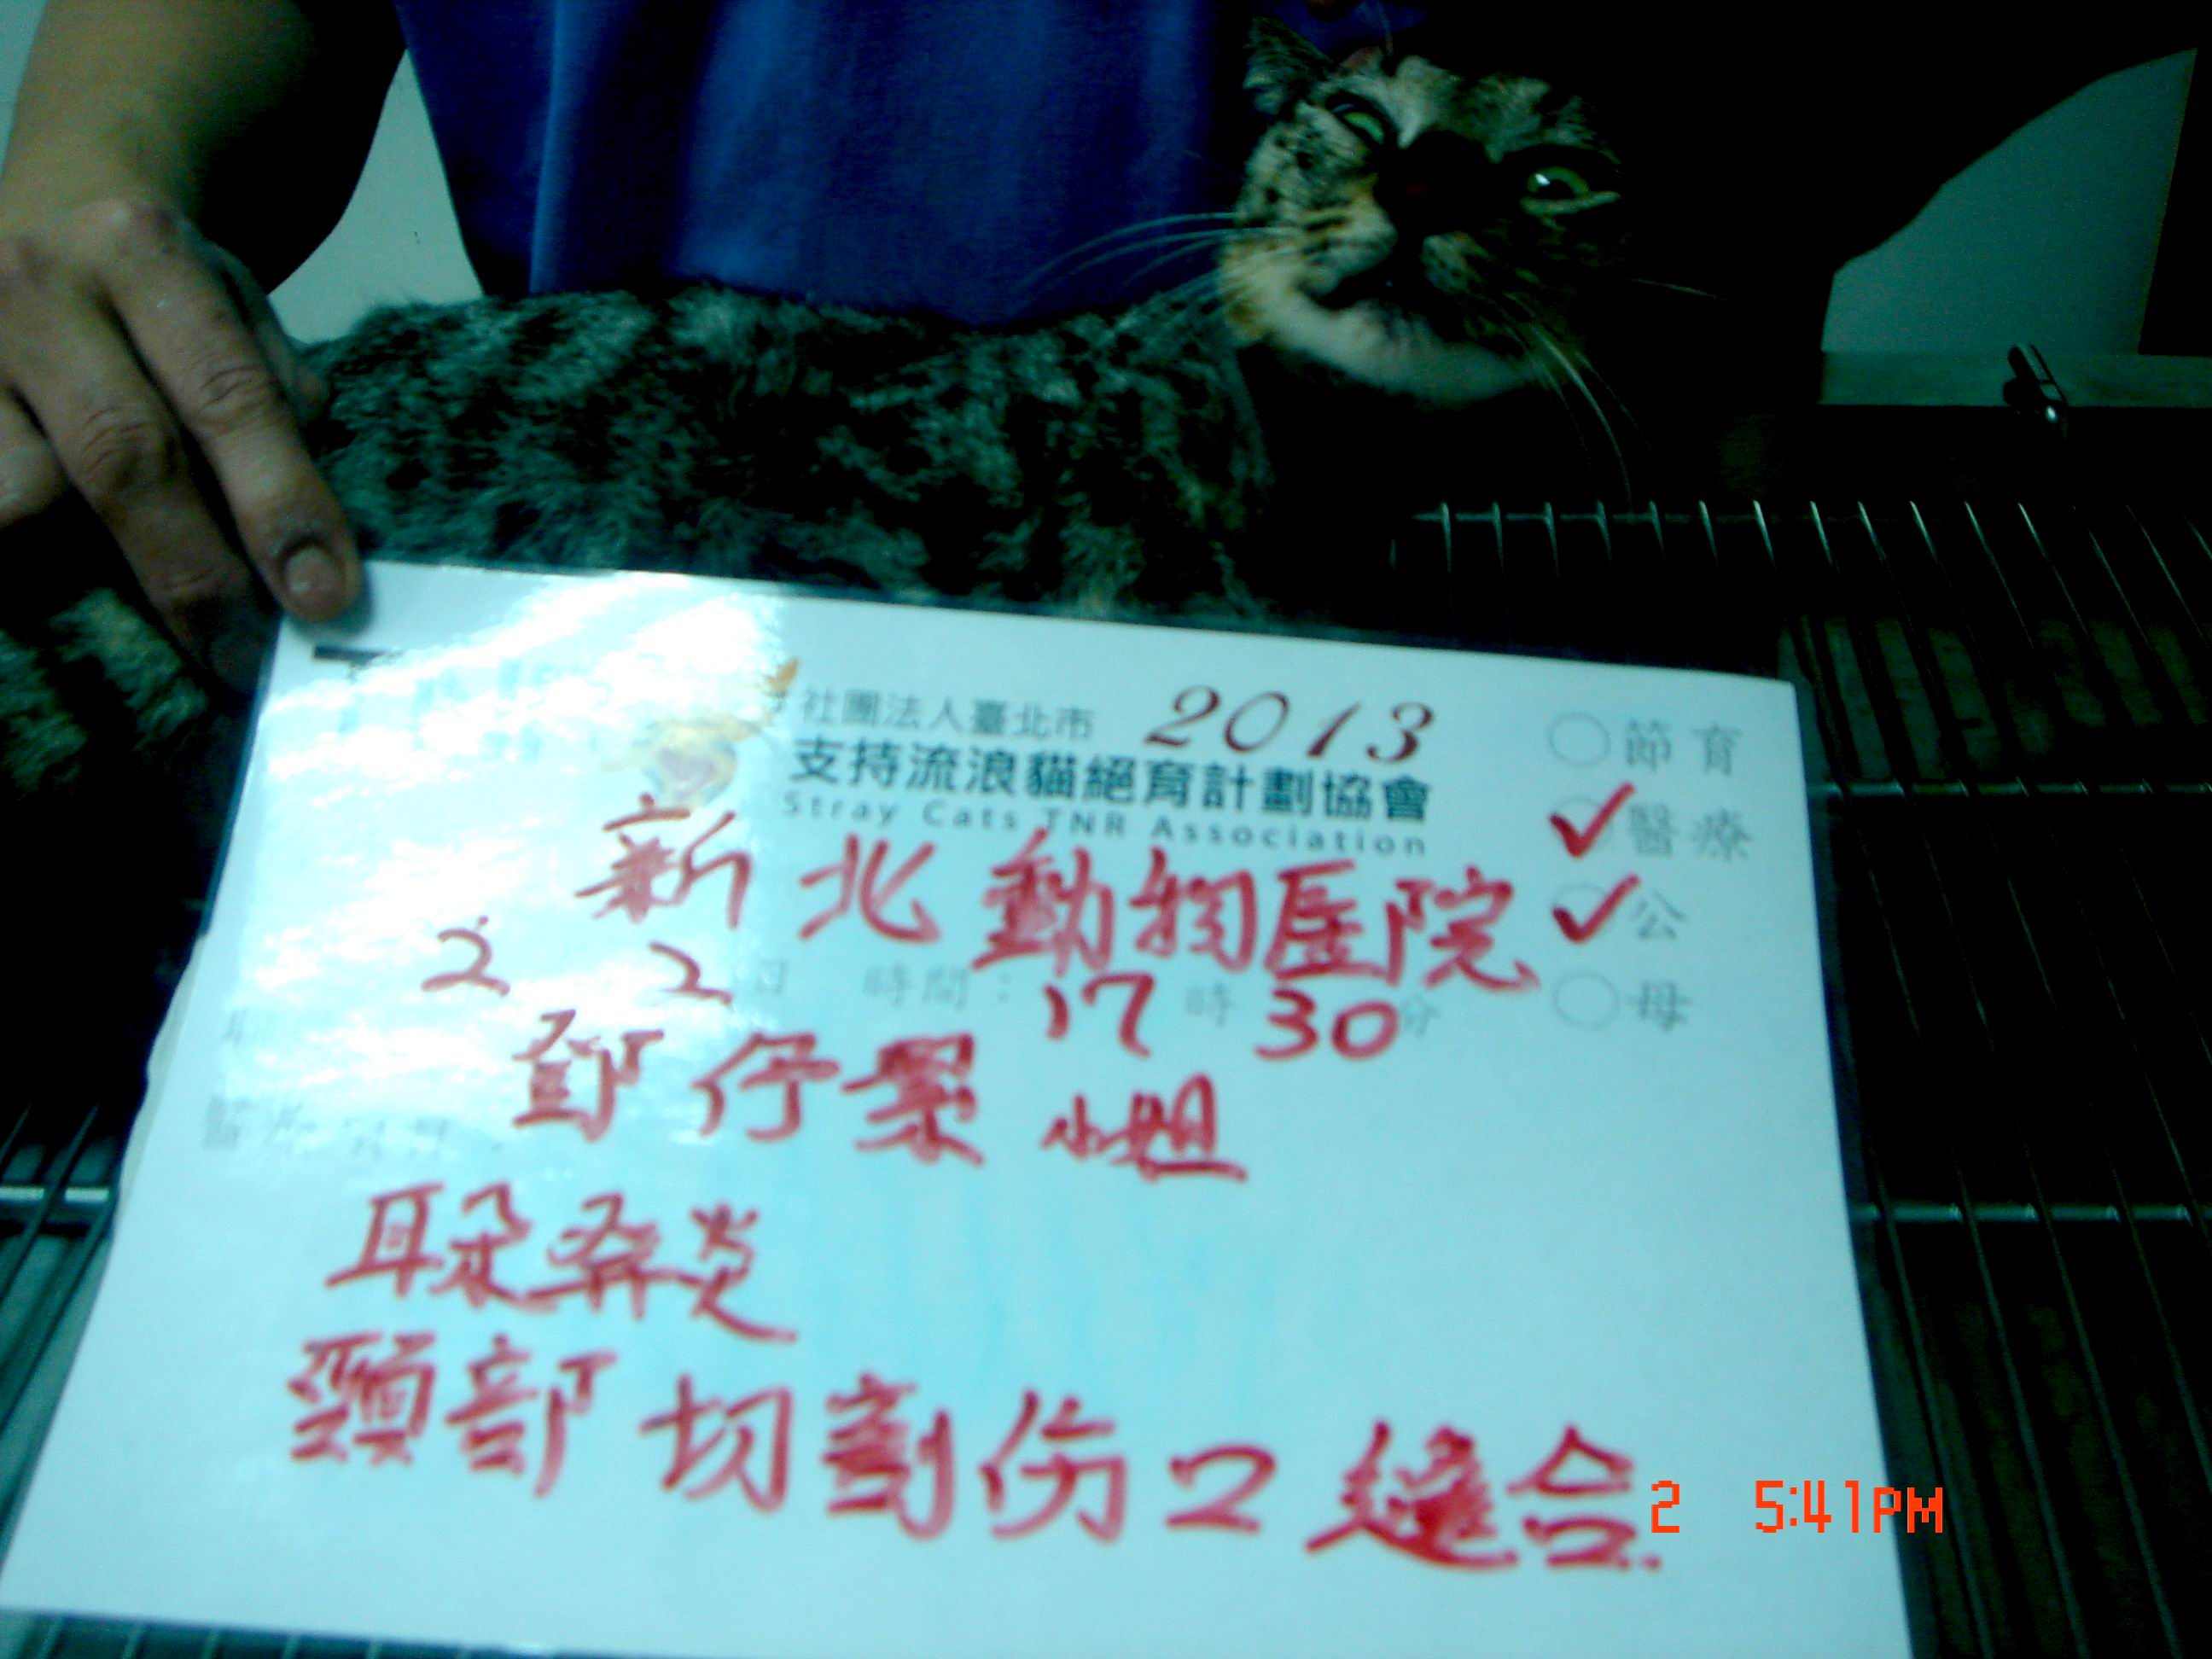 社團法人臺北市 2013
支持流浪貓絕育計劃協會
Stray Cats TNR Association
節育
✓醫療
✓公
母
新北動物医院
2 2日 時間：17時30分
鄧伃 小姐
耳朵發炎
頸部切割伤口縫合
2 5:41PM